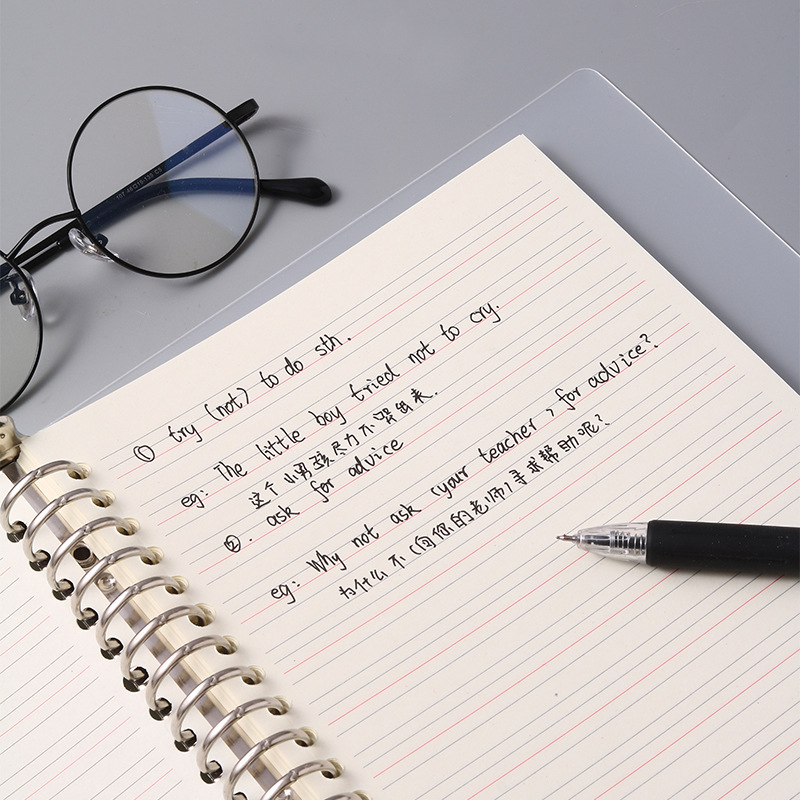 ① try (not) to do sth.
eg: The little boy tried not to cry.
这个小男孩尽力不哭出来.
②. ask for advice
eg: Why not ask (your teacher) for advice?
为什么不(向你的老师)寻求帮助呢?